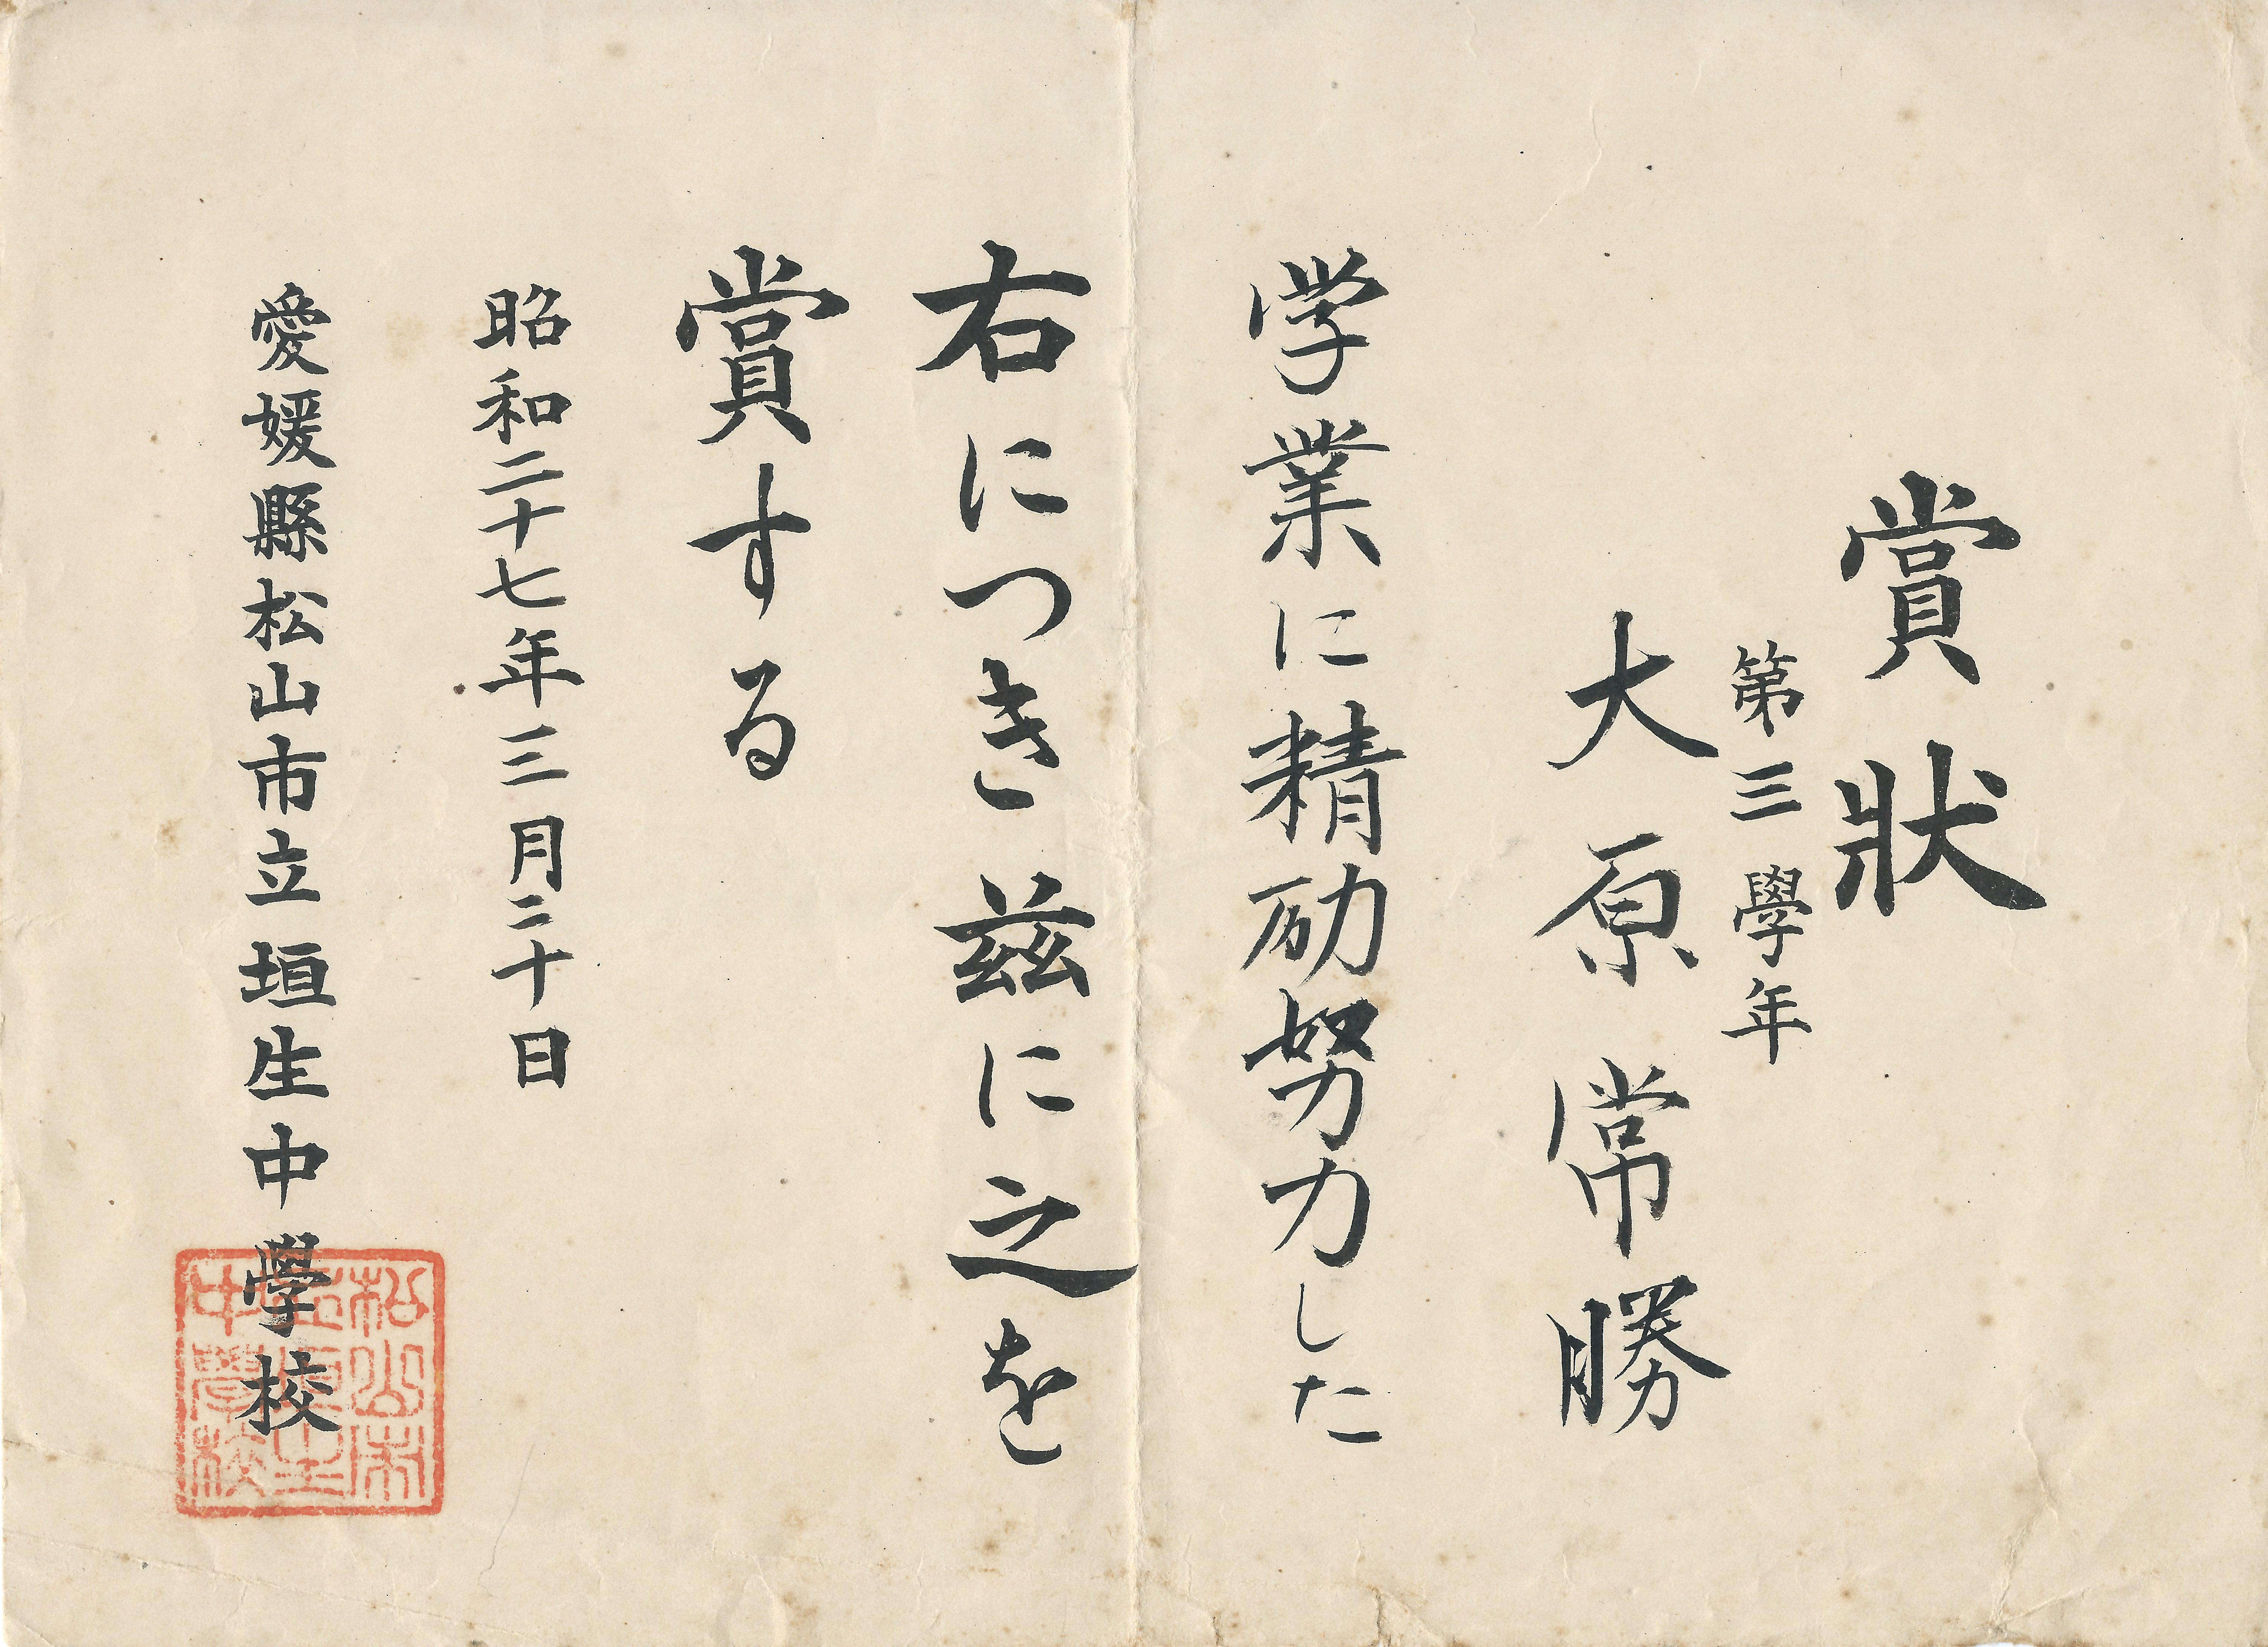 賞狀
第三學年
大原常勝
学業に精励努力した
右につき玆に之を
賞する
昭和二十七年三月二十日
愛媛縣松山市立垣生中學校
松山市
立垣生
中學校